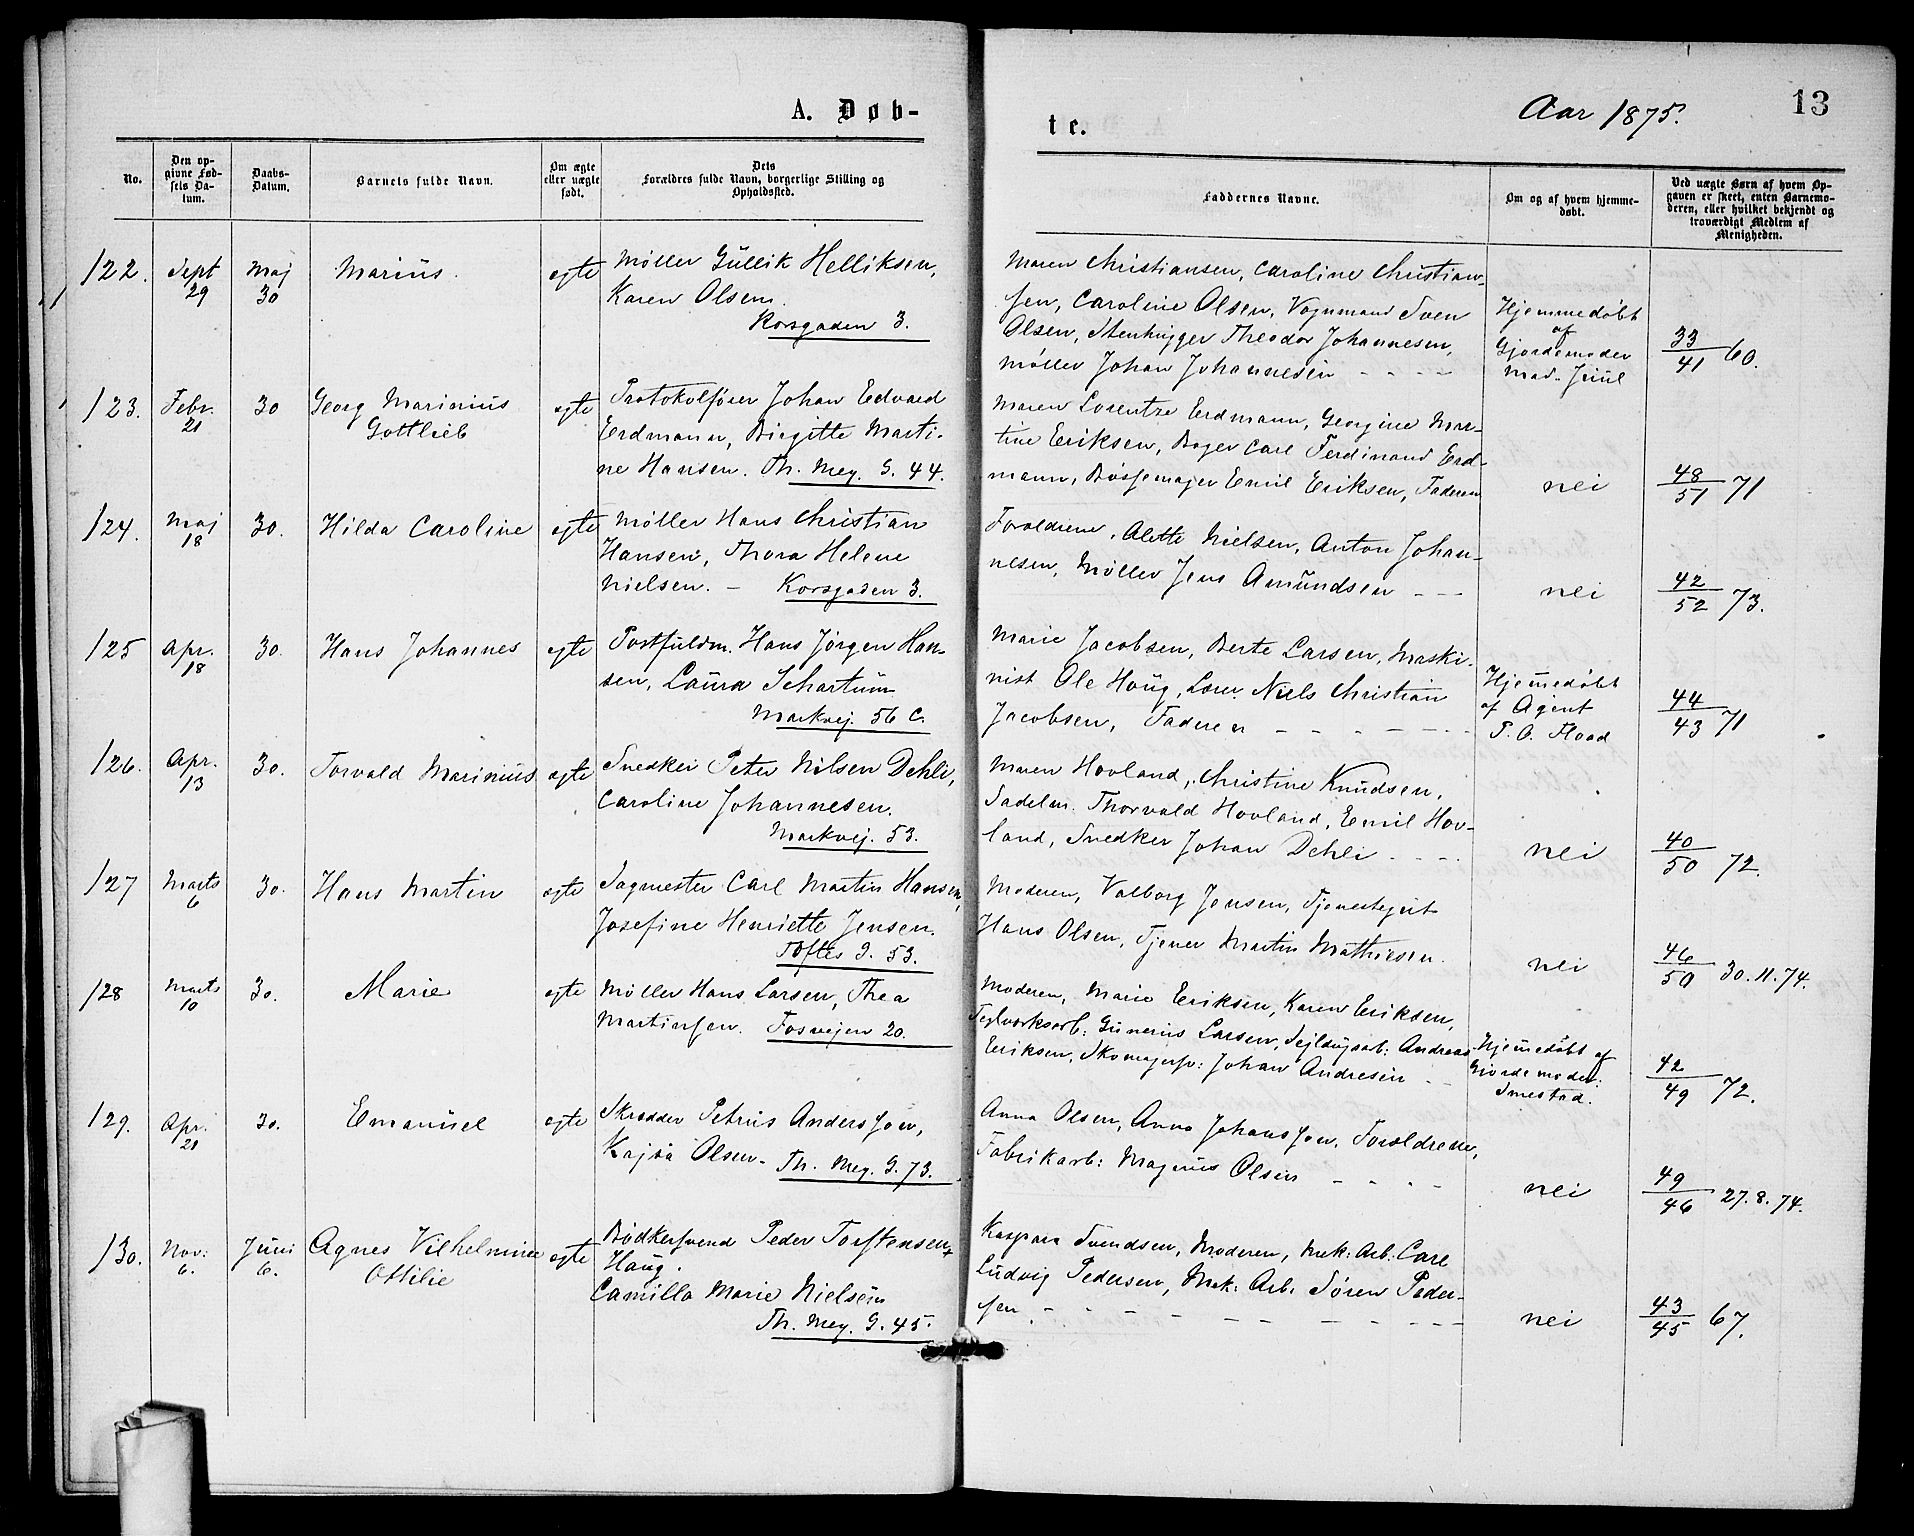 A. Døb-
No.
Den op-
givne Fød-
sels Da-
tum.
Daabs-
Datum.
Barnets fulde Navn.
Om ægte
eller uægte
født.
Dets
Forældres fulde Navn, borgerlige Stilling og
Opholdssted.
122.
Sept
29
Maj
30
Marius.
egte
Møller Gullik Helliksen,
Karen Olsen.
Korsgaden 3.
123.
Febr.
21
30
Georg Marinius
Gottlieb
egte
Protokolfører Johan Edvard
Erdmann, Birgitte Marti-
ne Hansen. Th. Mey. G. 44.
124.
Maj
18
30.
Hilda Caroline
egte
Møller Hans Christian
Hansen, Thora Helene
Nielsen. – Korsgaden 3.
125
Apr.
18
30.
Hans Johannes
egte
Postfuldm. Hans Jørgen Han-
sen, Laura Schartum
Markvej. 56 C.
126.
Apr.
13
30.
Torvald Marinius
egte
Snedker Peter Nilsen Dehli,
Caroline Johannesen.
Markvej. 53.
127
Marts
6
30.
Hans Martin
egte
Sagmester Carl Martin Hansen,
Josefine Henriette Jensen.
Toftes G. 53.
128
Marts
10
30.
Marie
egte
Møller Hans Larsen, Thea
Martinsen. Fosvejen 20.
129.
Apr.
21
30.
Emanuel
egte
Skrædder Petrus Andersson,
Kajsa Olsen. Th. Mey. G. 73.
130.
Nov:
6.
Juni
6.
Agnes Vilhelmine
Ottilie
egte
Bødkersvend Peder Torstensen
Haug.
Camilla Marie Nielsen
Th. Mey. G. 45.
te.
Aar 1875.
13
Faddernes Navne.
Om og af hvem hjemme-
døbt.
Ved uægte Børn af hvem Op-
gaven er skeet, enten Barnemo-
deren, eller hvilket bekjendt og
troværdigt Medlem af
Menigheden.
Maren Christiansen, Caroline Christian-
sen, Caroline Olsen, Vognmand Sven
Olsen, Stenhugger Theodor Johannesen,
Møller Johan Johannesen - - - -
Hjemmedøbt
af
Gjordemoder
Mad. Juul
33
41 60.
Maren Lorentze Erdmann, Georgine Mar-
tine Eriksen, Bager Carl Ferdinand Erd-
mann, Bøssemager Emil Eriksen, Faderen
nei
48
51 71
Forældrene, Alette Nielsen, Anton Johan-
nesen, Møller Jens Amundsen - - -
nei
42
52 73.
Marie Jacobsen, Berte Larsen, Maski-
nist Ole Houg, Lærer Niels Christian
Jacobsen, Faderen - - - - - - -
Hjemedøbt
af Agent
P. A. Flood
44
43 71
Maren Hovland, Christine Knudsen,
Sadelm. Thorvald Hovland, Emil Hov-
land, Snedker Johan Dehli - - - -
nei
40
50 72.
Moderen, Valborg Jensen, Tjenestegut
Hans Olsen, Tjener Martin Mathiesen.
nei
46
50 30.11.74.
Moderen, Marie Eriksen, Karen Eriksen,
Teglværksarb: Gunerius Larsen, Sejldugsarb: Andreas
Eriksen, Skomagersv: Johan Andresen - -
Hjemedøbt af
Gjordemoder:
Smestad.
42
49 72.
Anna Olsen, Anna Johansson, Forældrene,
Fabrikarb: Magnus Olsen - - - -
nei
49
46 27.8.74.
Kaspara Svendsen, Moderen, Mek: Arb: Carl
Ludvig Pedersen, Mek: Arb: Søren Peder-
sen. - - - - - - - - - -
nei
43
45 67.